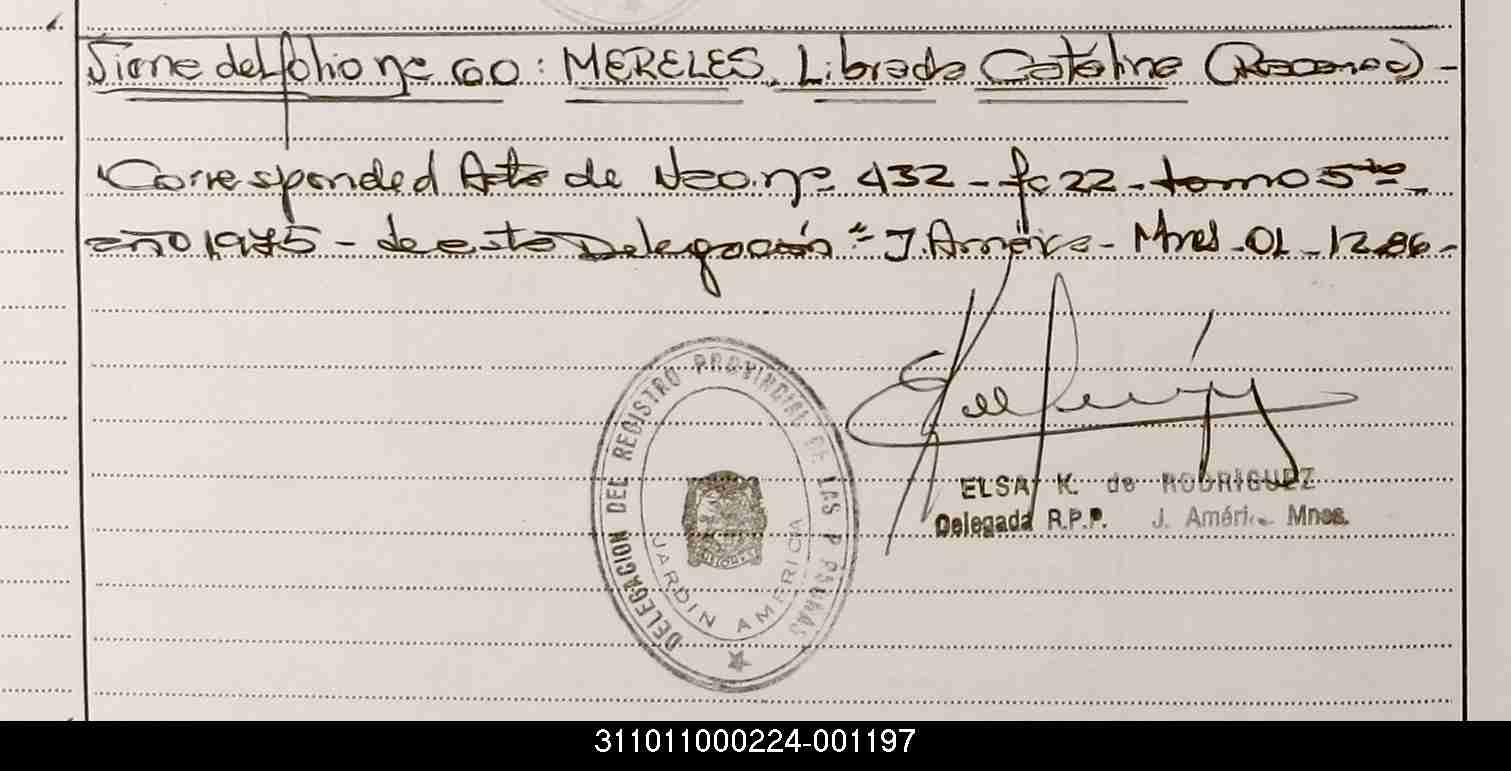 Viene del folio nº 60: MERELES, Librada Catalina (Reconoc) -
Corresponde al Acta de Nac. nº 432 - fº 22 - tomo 5to
año 1975 - de esta Delegación - J. América - Mnes - 01 - 12.86 -
DELEGACION DEL REGISTRO PROVINCIAL DE LAS P
JARDIN AMERICA
ELSA K. de RODRIGUEZ
Delegada R.P.P. J. Améri Mnes.
311011000224-001197